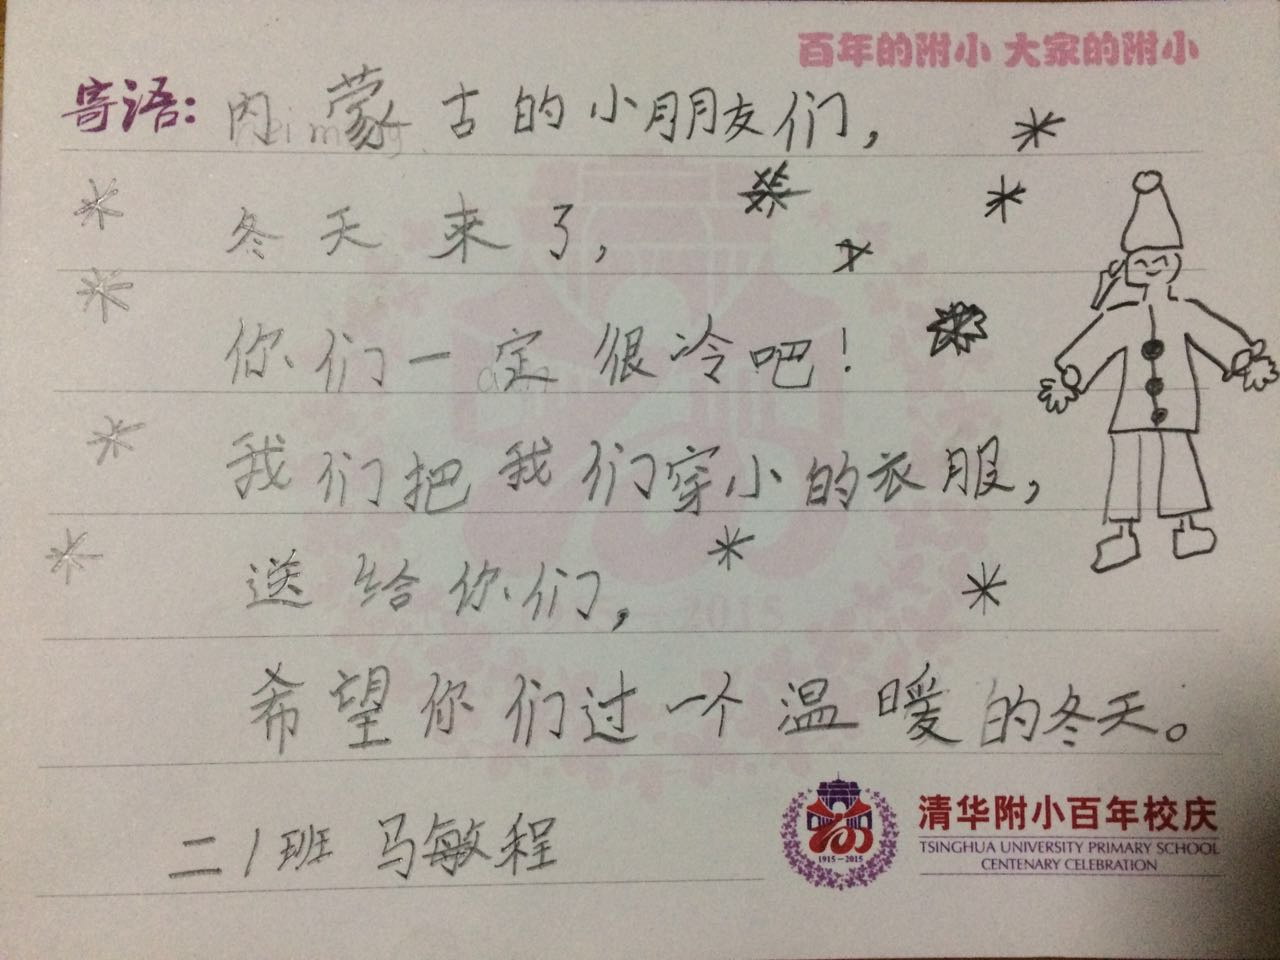 百年的附小 大家的附小
寄语：内蒙古的小朋友们，
冬天来了，
你们一定很冷吧！
我们把我们穿小的衣服，
送给你们，
希望你们过一个温暖的冬天。
二1班 马敏程
1915-2015
清华附小百年校庆
TSINGHUA UNIVERSITY PRIMARY SCHOOL
CENTENARY CELEBRATION